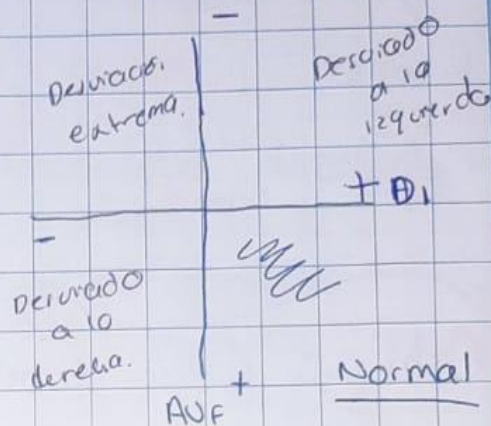 −
Desviació.
extrema.
Desviado
a la
izquierda
+ D1
−
Desviado
a la
derecha.
+
AVF
Normal